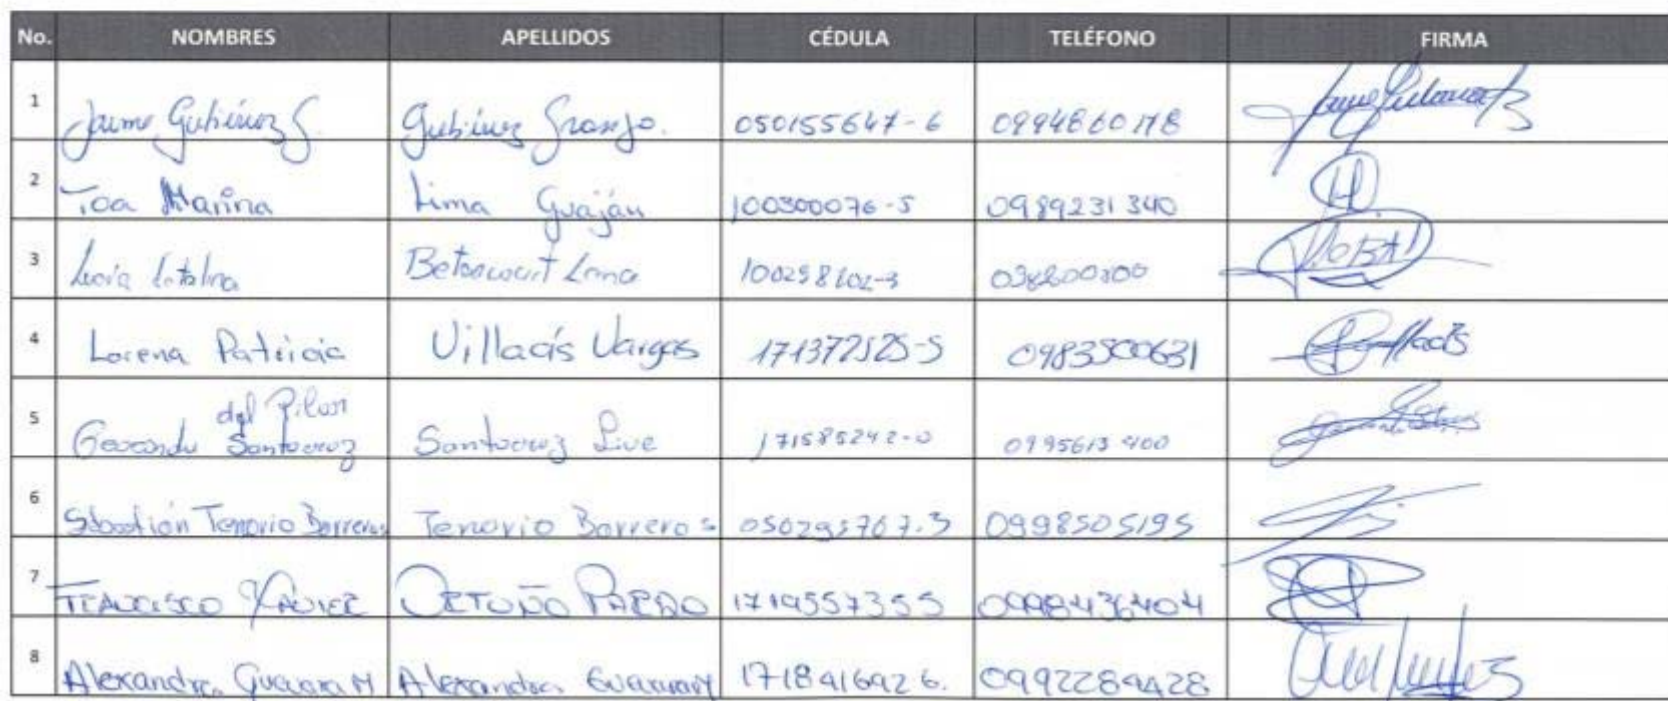 No. NOMBRES APELLIDOS CÉDULA TELÉFONO FIRMA
1 Jaime Gutiérrez G. Gutiérrez Granja. 050155647-6 0994860178
2 Toa Marina Lima Guaján 100300076-5 0989231340
3 Lucía Catalina Betancourt Lima 100258102-3
4 Lorena Patricia Villacís Vargas 171372525-5 0983500631
5 del Pilar Santacruz Santacruz 171585242-0 0995613400
6 Sebastián Tenorio Barreros Tenorio Barreros 050295767-3 0998505195
7 Francisco Xavier Ortuño Pardo 1719557355 0998436404
8 Alexandra Guevara M Alexandra Guevara M 1718416926. 0992284428